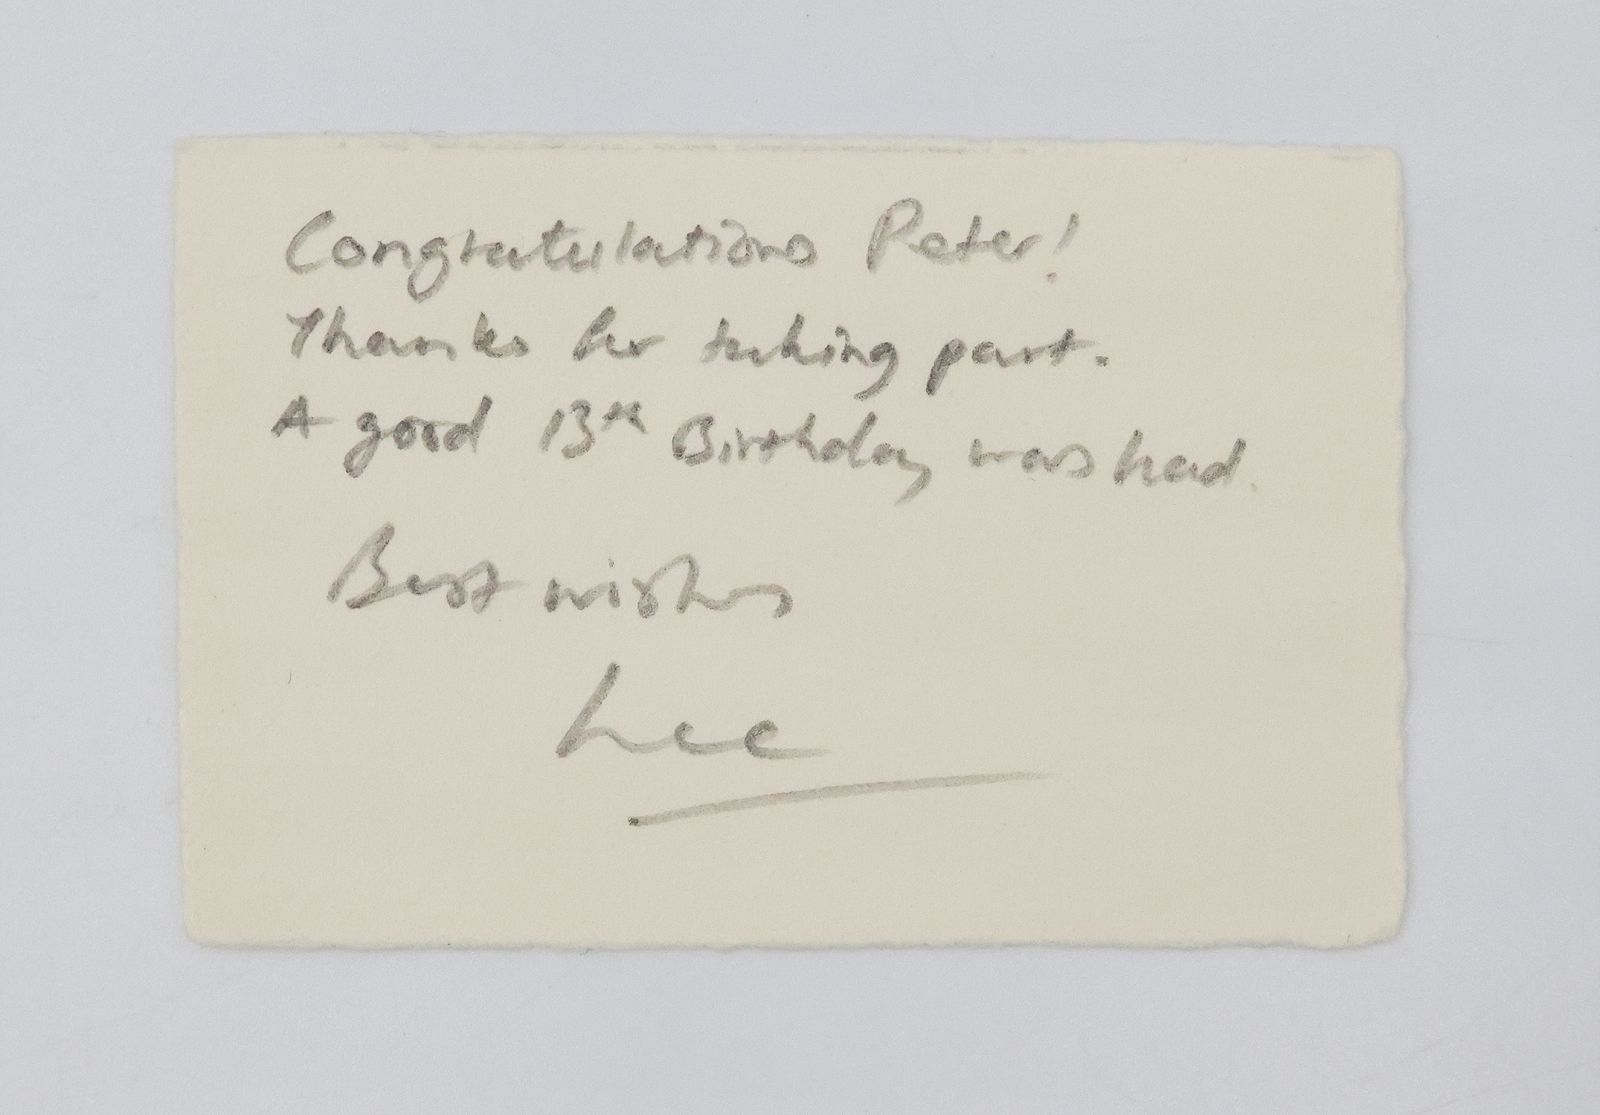 Congratulations Peter!
Thanks for taking part.
A good 13th Birthday was had.
Best wishes
Lee